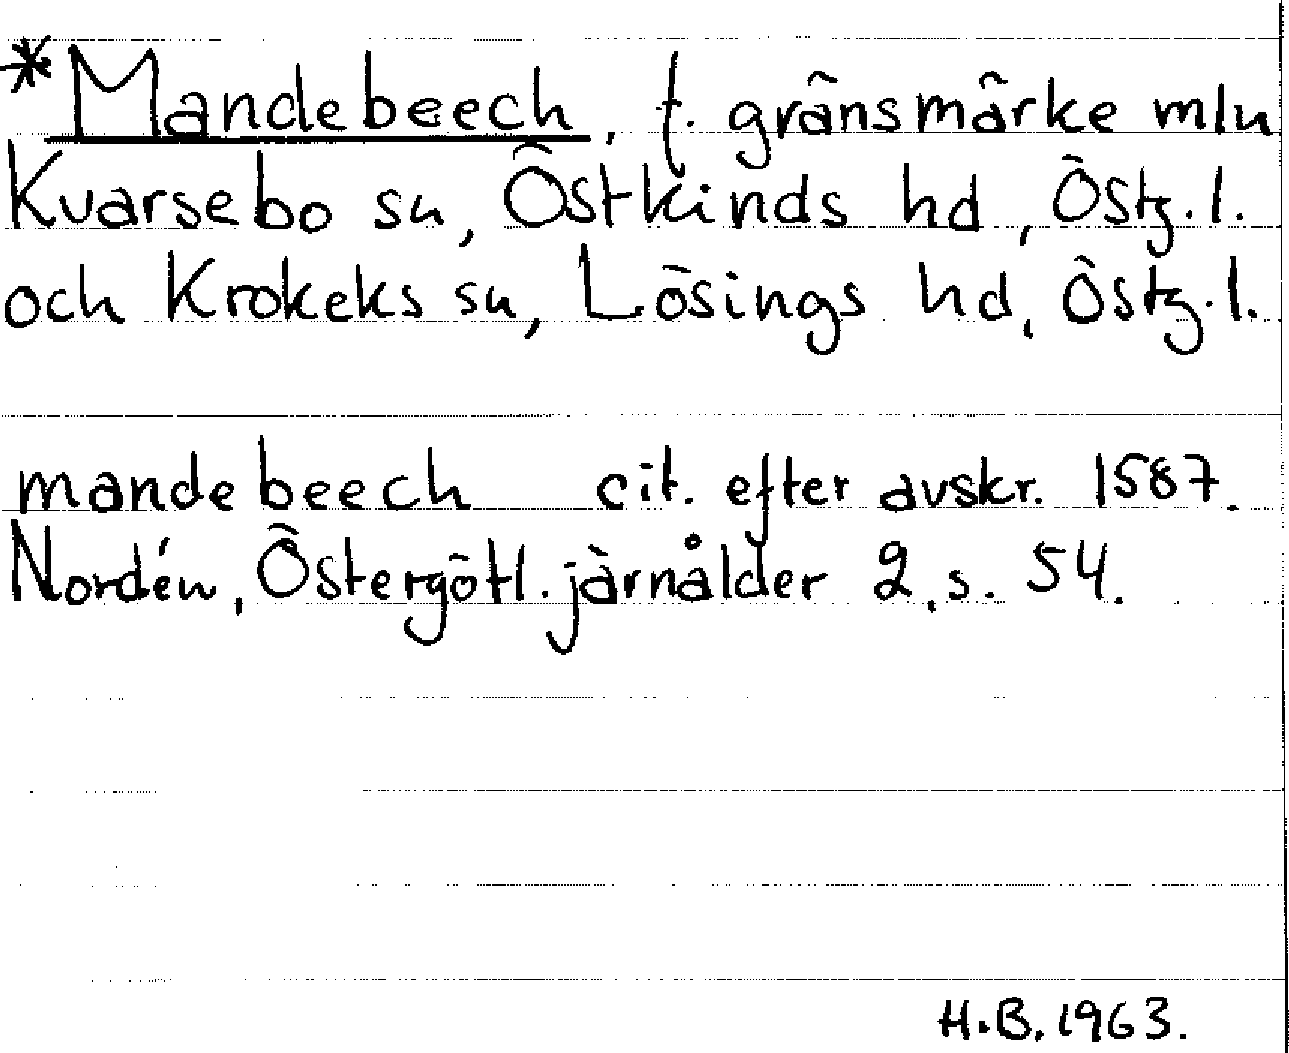 *Mandebeech, f. gränsmärke mln
Kvarsebo sn, Östkinds hd, Östg.l.
och Krokeks sn, Lösings hd, Östg.l.
mandebeech cit. efter avskr. 1587.
Nordén, Östergötl. järnålder 2, s. 54.
H.B. 1963.